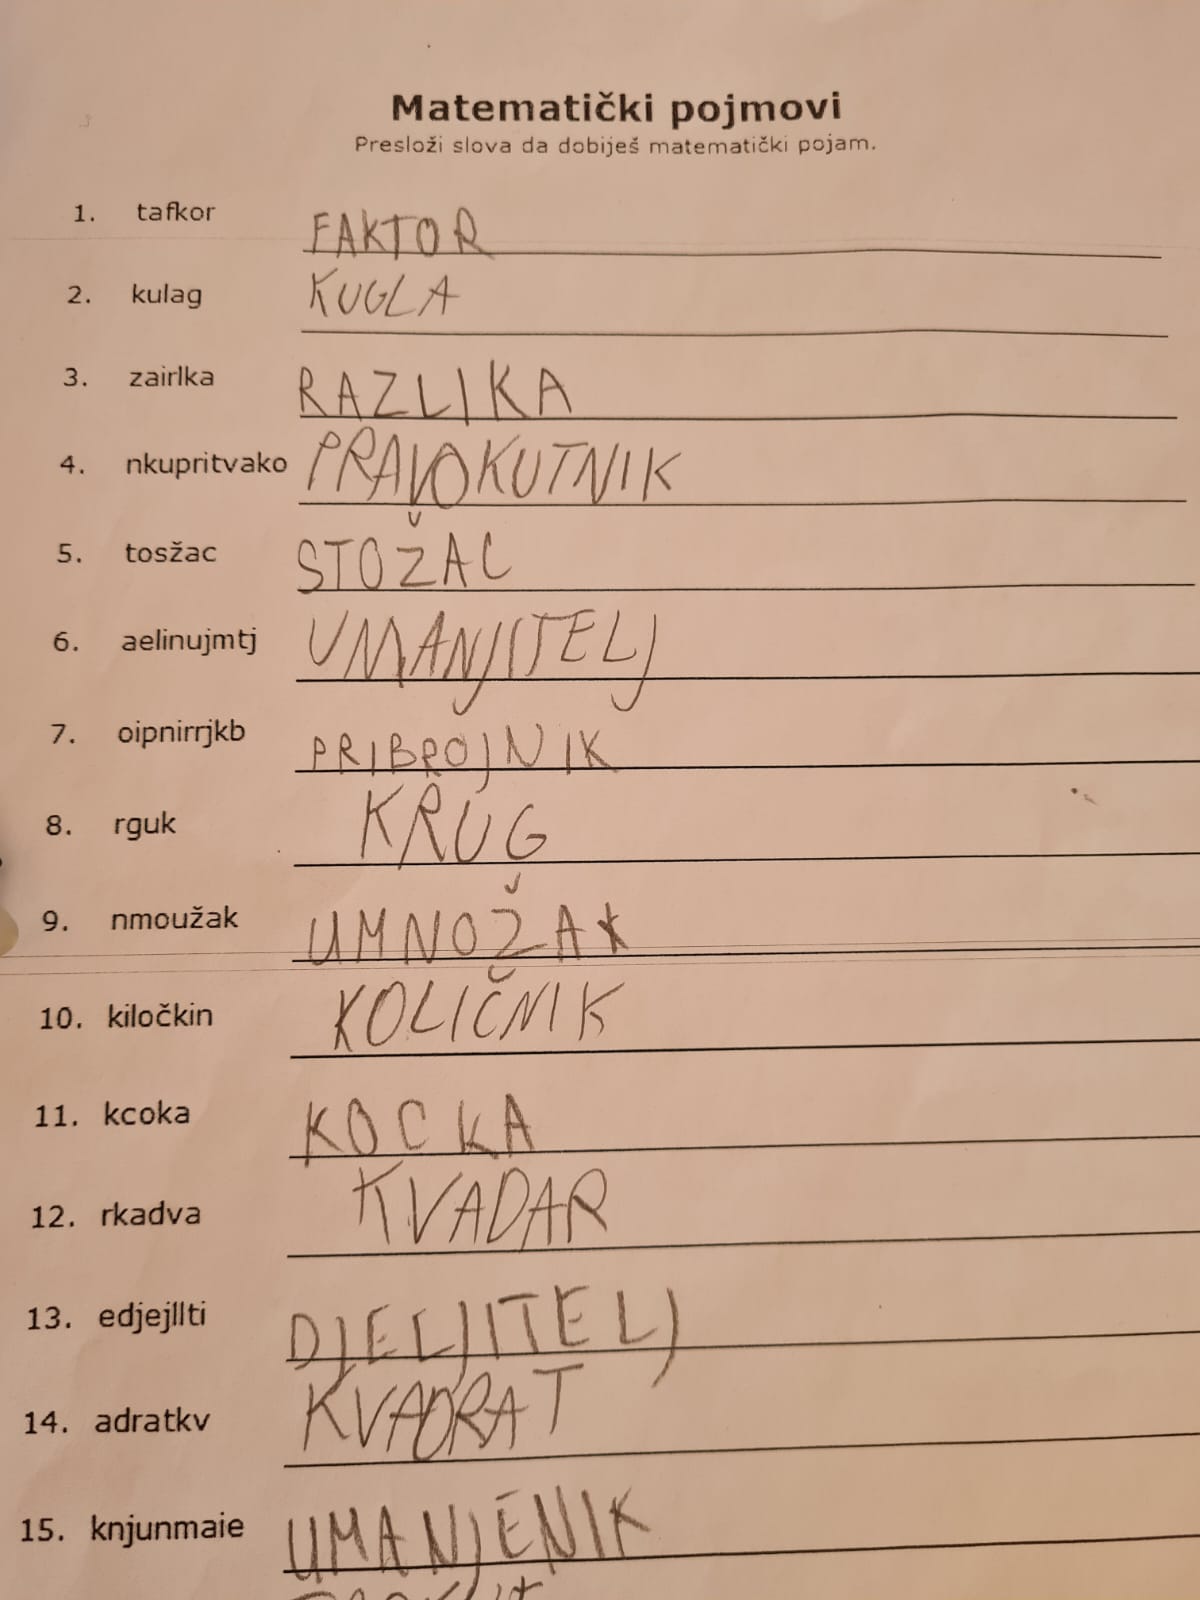 Matematički pojmovi
Presloži slova da dobiješ matematički pojam.
1. tafkor FAKTOR
2. kulag KUGLA
3. zairlka RAZLIKA
4. nkupritvako PRAVOKUTNIK
5. tosžac STOŽAC
6. aelinujmtj UMANJITELJ
7. oipnirrjkb PRIBROJNIK
8. rguk KRUG
9. nmoužak UMNOŽAK
10. kiločkin KOLIČNIK
11. kcoka KOCKA
12. rkadva KVADAR
13. edjejllti DJELJITELJ
14. adratkv KVADRAT
15. knjunmaie UMANJENIK